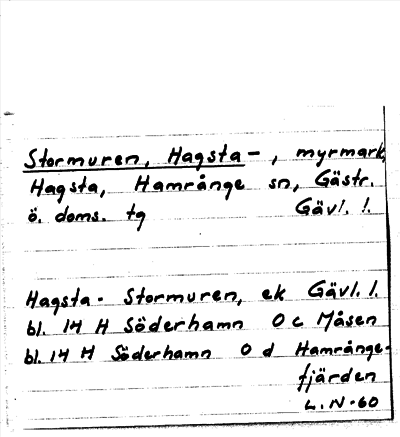 Stormuren, Hagsta - , myrmark,
Hagsta, Hamrånge sn, Gästr.
ö. doms. tg Gävl. l.
Hagsta - Stormuren, ek Gävl. l.
bl. 14 H Söderhamn 0 c Måsen
bl. 14 H Söderhamn 0 d Hamrånge-
fjärden
L. N - 60